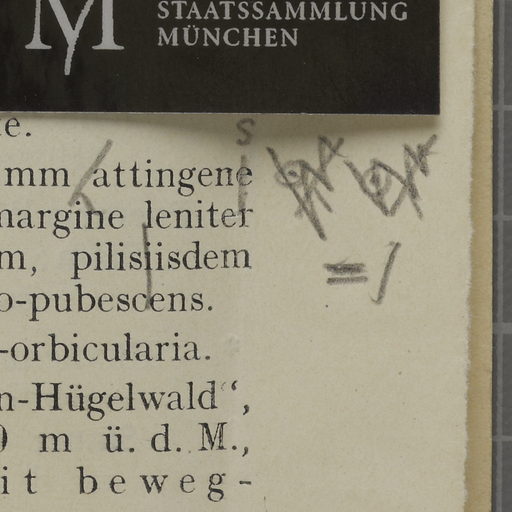 M STAATSSAMMLUNG
MÜNCHEN
te.
s
mm attingene
margine leniter
m, pilis iisdem
o-pubescens.
-orbicularia.
n-Hügelwald“,
0 m ü. d. M.,
it beweg-